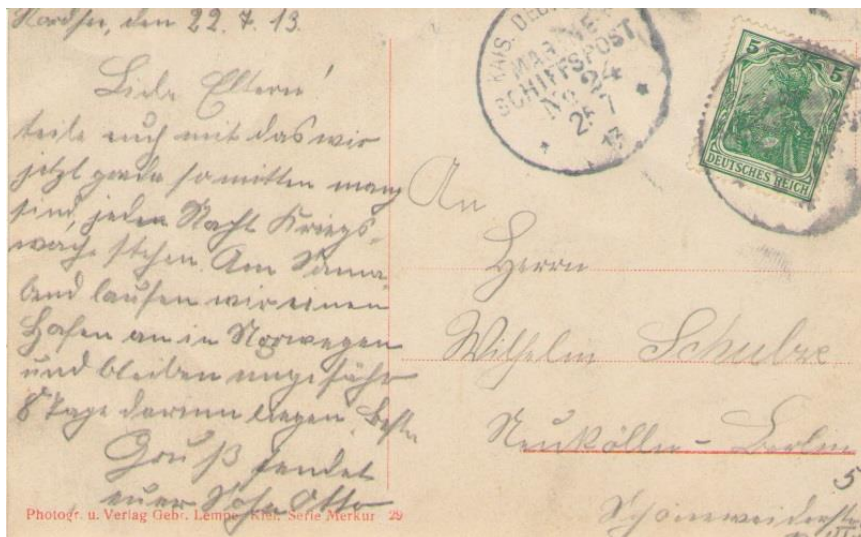 Nordsee, den 22.7.13.
Liebe Eltern!
teile euch mit das wir
jetzt grade so mitten mang
sind, jeden Nacht Kriegs-
wache stehen. Am Sonna-
bend laufen wir einen
Hafen an in Norwegen
und bleiben ungefähr
8 Tage darinn liegen. Besten
Gruß sendet
euer Sohn Otto
Photogr. u. Verlag Gebr. Lempe, Kiel. Serie Merkur 29
KAIS. DEUTSCHE
MARINE-
SCHIFFSPOST
No 24
25 7
13
5 5
DEUTSCHES REICH
An
Herrn
Wilhelm Schulze
Neukölln-Berlin
5
Schöneweiderstr.